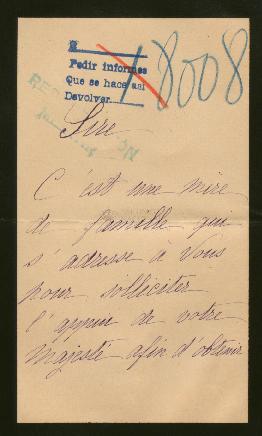 Pedir informes
Que se hace asi
Devolver
8008
Sire
C'est une mère
de famille qui
s'adresse à Vous
pour solliciter
l'appui de votre
Majesté afin d'obtenir